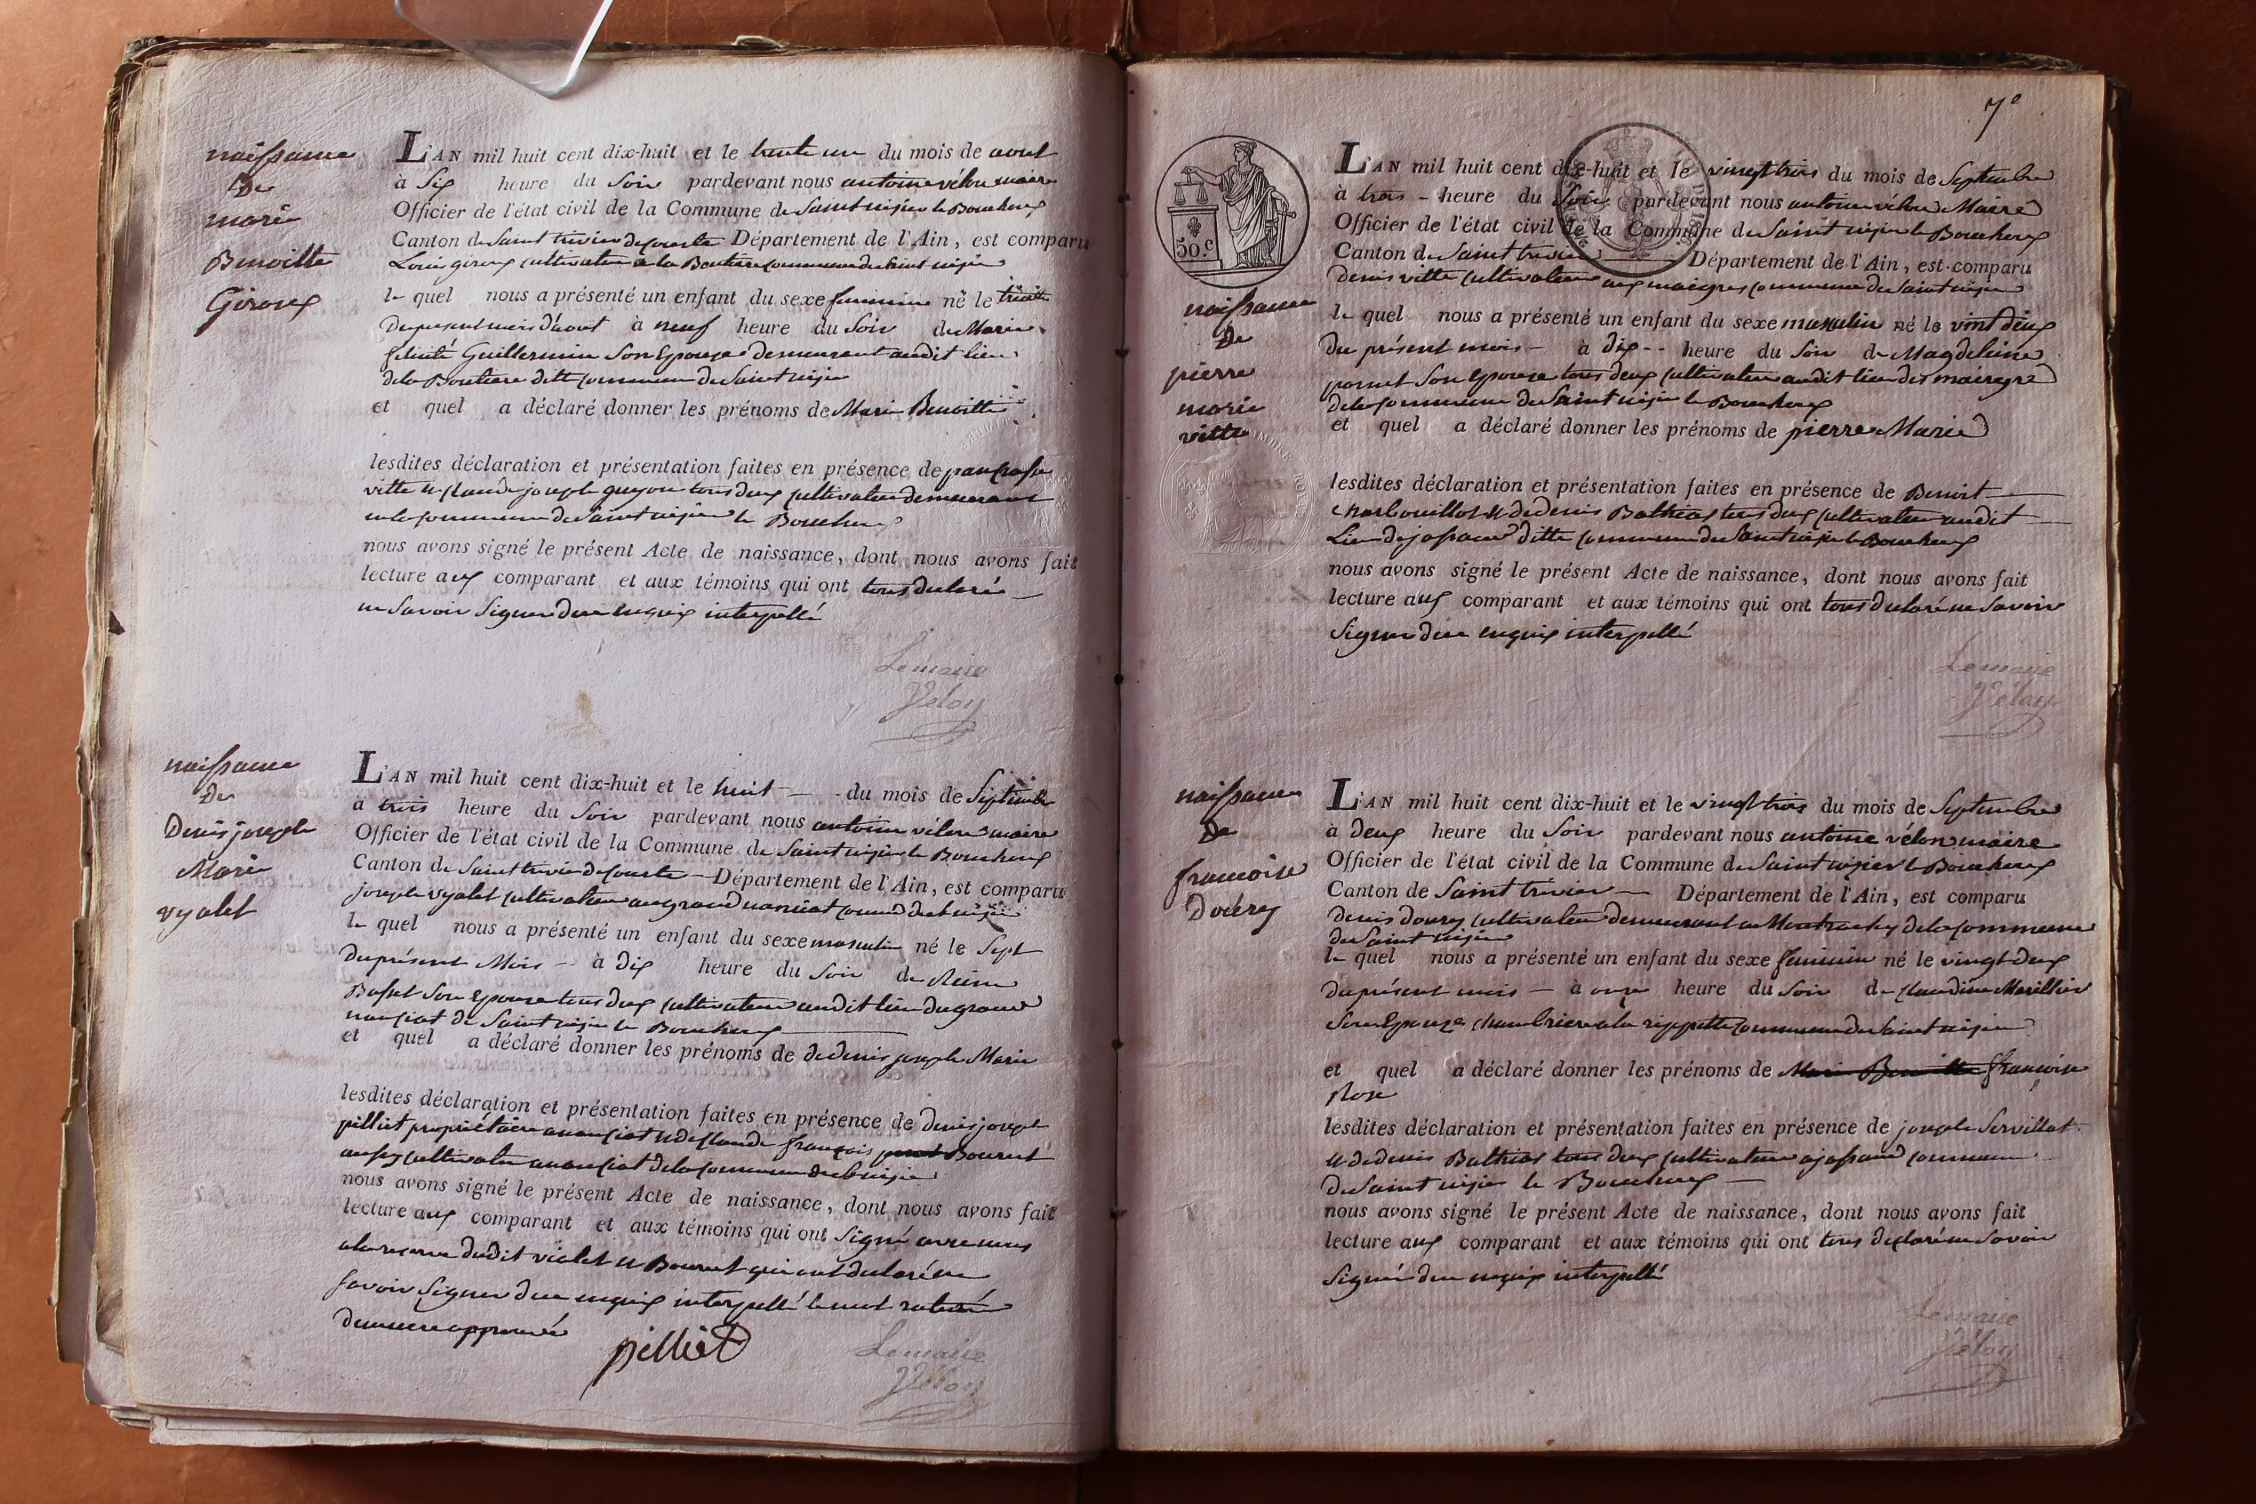 naissance
de
marie
Benoitte
Giroux
L'AN mil huit cent dix-huit et le trente un du mois de aout
à Six heure du Soir pardevant nous antoine vélon maire
Officier de l'état civil de la Commune de Saint nizier le Bouchoux
Canton de Saint trivier de Courte Département de l'Ain, est comparu
Louis giroux cultivateur a la Boutiere commune de Saint nizier
le quel nous a présenté un enfant du sexe feminin né le trente
du present mois d'aout à neuf heure du Soir de Marie
felicité Guillermin Son Epouse demeurant audit lieu
de la Boutiere ditte commune de Saint nizier
et quel a déclaré donner les prénoms de Marie Benoitte
lesdites déclaration et présentation faites en présence de
vitte et Claude joseph guyon tous deux cultivateur demeurant
en la commune de Saint nizier le Bouchoux
nous avons signé le présent Acte de naissance, dont nous avons fait
lecture aux comparant et aux témoins qui ont tous declaré
ne Savoir Signer de ce enquis interpellé
Le maire
Vélon
naissance
de
Denis joseph
Marie
vyalet
L'AN mil huit cent dix-huit et le huit du mois de Septembre
à trois heure du Soir pardevant nous antoine vélon maire
Officier de l'état civil de la Commune de Saint nizier le Bouchoux
Canton de Saint trivier de Courte Département de l'Ain, est comparu
joseph vyalet cultivateur au grand nanciat
le quel nous a présenté un enfant du sexe masculin né le Sept
du présent Mois à dix heure du Soir de Reine
Basset Son Epouse tous deux cultivateur audit lieu du grand
nanciat de Saint nizier le Bouchoux
et quel a déclaré donner les prénoms de de denis joseph Marie
lesdites déclaration et présentation faites en présence de denis joseph
pilliet propriétaire a nanciat et de Claude françois Bourut
aussy cultivateur a nanciat de la commune de St nizier
nous avons signé le présent Acte de naissance, dont nous avons fait
lecture aux comparant et aux témoins qui ont Signé avec nous
a la reserve dudit violet et Bourut qui ont declaré ne
Savoir Signer de ce enquis interpellé le mot
approuvé
pilliet
Le maire
Vélon
7e
50.c
naissance
de
pierre
marie
vitte
L'AN mil huit cent dix-huit et le vingt trois du mois de Septembre
à trois heure du Soir pardevant nous antoine vélon Maire
Officier de l'état civil de la Commune de Saint nizier le Bouchoux
Canton de Saint trivier Département de l'Ain, est comparu
denis vitte cultivateur aux commune de Saint nizier
le quel nous a présenté un enfant du sexe masculin né le vint deux
du présent mois à dix heure du Soir de Magdeleine
Son epouse tous deux cultivateur audit lieu des
de la commune de Saint nizier le Bouchoux
et quel a déclaré donner les prénoms de pierre Marie
lesdites déclaration et présentation faites en présence de Benoit
Charbouillot et de denis Bathias tous deux cultivateur audit
Lieu de ditte commune de Saint nizier le Bouchoux
nous avons signé le présent Acte de naissance, dont nous avons fait
lecture aux comparant et aux témoins qui ont tous declaré ne Savoir
Signer de ce enquis interpellé
Le maire
Vélon
naissance
de
francoise
Douvry
L'AN mil huit cent dix-huit et le vingt trois du mois de Septembre
à deux heure du Soir pardevant nous antoine vélon maire
Officier de l'état civil de la Commune de Saint nizier le Bouchoux
Canton de Saint trivier Département de l'Ain, est comparu
denis cultivateur demeurant a de la commune
de Saint nizier
le quel nous a présenté un enfant du sexe feminin né le vingt deux
du présent mois à onze heure du Soir de Claudine Marillier
Son Epouze commune de Saint nizier
et quel a déclaré donner les prénoms de Marie Benoitte françoise
Rose
lesdites déclaration et présentation faites en présence de joseph Servillat
et de denis Bathias tous deux cultivateur commune
de Saint nizier le Bouchoux
nous avons signé le présent Acte de naissance, dont nous avons fait
lecture aux comparant et aux témoins qui ont tous declaré ne Savoir
Signer de ce enquis interpellé
Le maire
Vélon